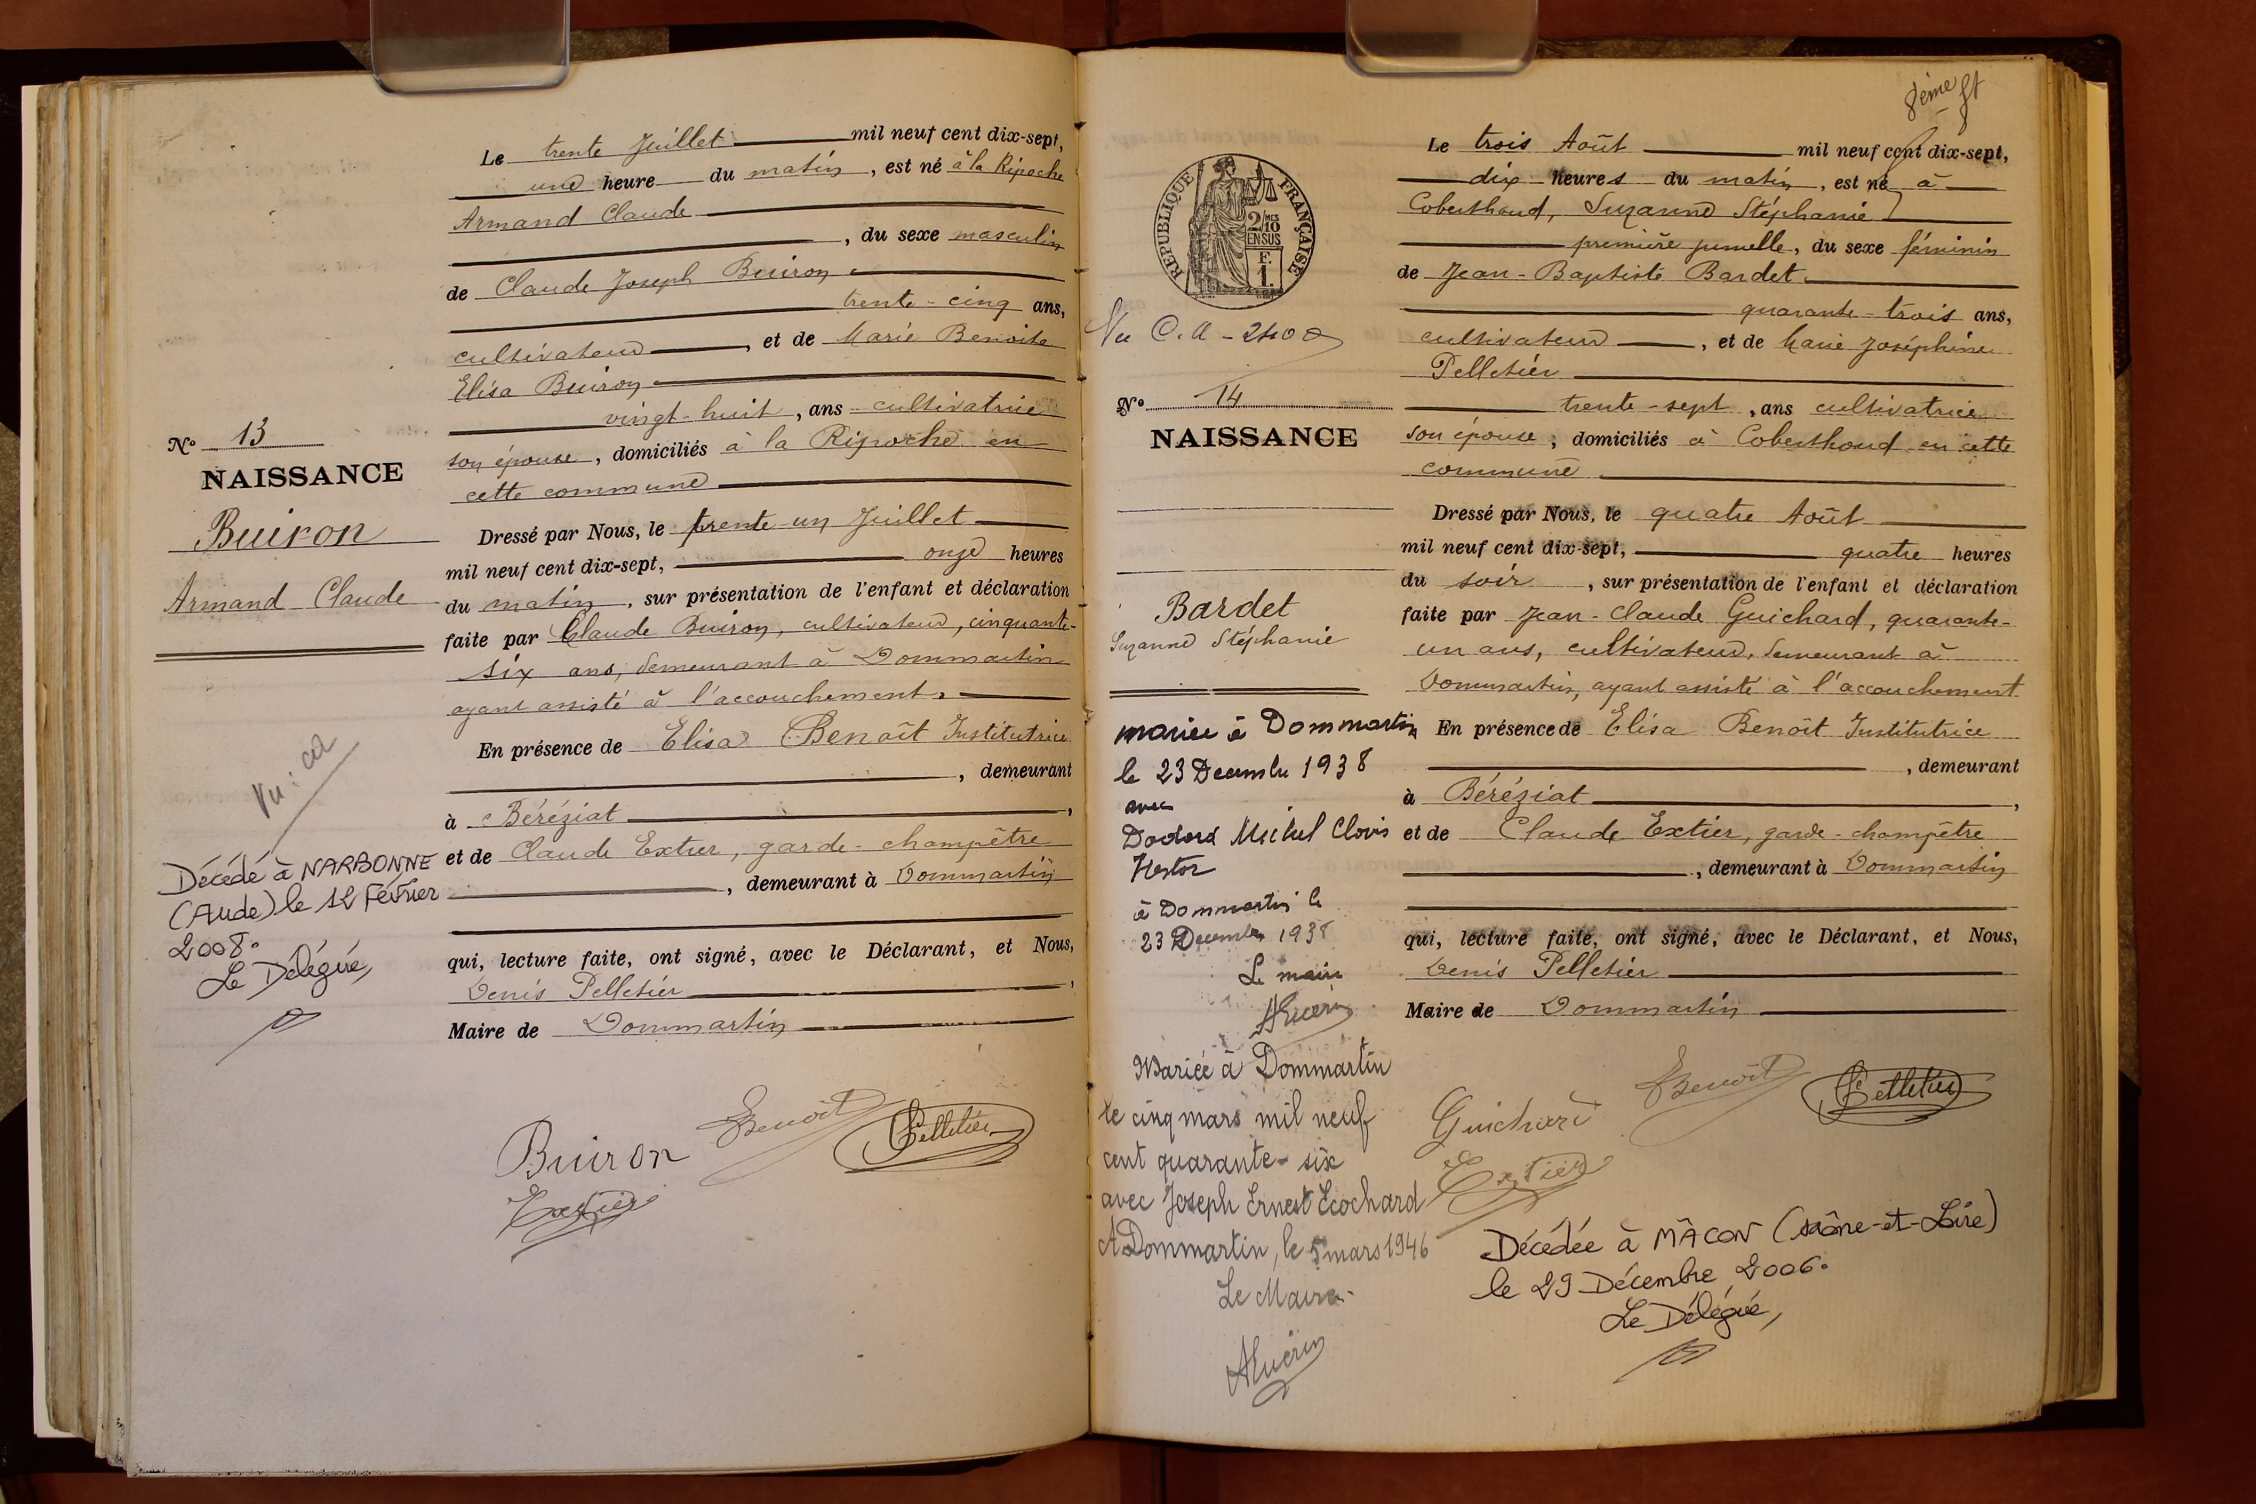 Le trente Juillet mil neuf cent dix-sept,
une heure du matin, est né à la Ripoche
Armand Claude
, du sexe masculin
de Claude Joseph Buiron
trente-cinq ans,
cultivateur, et de Marie Benoite
Elisa Buiron
vingt-huit, ans cultivatrice
son épouse, domiciliés à la Ripoche en
cette commune
Nº 13
NAISSANCE
Buiron
Armand Claude
Dressé par Nous, le trente-un Juillet
mil neuf cent dix-sept, onze heures
du matin, sur présentation de l'enfant et déclaration
faite par Claude Buiron, cultivateur, cinquante-
six ans, demeurant à Dommartin
ayant assisté à l'accouchement,
En présence de Elisa Benoît Institutrice
, demeurant
à Béréziat,
et de Claude Extier, garde-champêtre
, demeurant à Dommartin
qui, lecture faite, ont signé, avec le Déclarant, et Nous,
Denis Pelletier,
Maire de Dommartin
Vu:
Décédé à NARBONNE
(Aude) le 12 Février
2008.
Le Délégué,
Buiron
Benoît
Pelletier
Extier
8ème ft
Le trois Août mil neuf cent dix-sept,
dix heures du matin, est né à
Coberthoud, Suzanne Stéphanie
première jumelle, du sexe féminin
de Jean-Baptiste Bardet
quarante-trois ans,
cultivateur, et de Marie Joséphine
Pelletier
trente-sept, ans cultivatrice
son épouse, domiciliés à Coberthoud en cette
commune
RÉPUBLIQUE FRANÇAISE
2/10 MES
EN SUS
F.
1.
Vu C.A - 2400
Nº 14
NAISSANCE
Bardet
Suzanne Stéphanie
Dressé par Nous, le quatre Août
mil neuf cent dix-sept, quatre heures
du soir, sur présentation de l'enfant et déclaration
faite par Jean-Claude Guichard, quarante-
un ans, cultivateur, demeurant à
Dommartin, ayant assisté à l'accouchement
En présence de Elisa Benoît Institutrice
, demeurant
à Béréziat,
et de Claude Extier, garde-champêtre
, demeurant à Dommartin
qui, lecture faite, ont signé, avec le Déclarant, et Nous,
Denis Pelletier
Maire de Dommartin
mariée à Dommartin
le 23 Decembre 1938
avec
Michel Clovis
Hestor
à Dommartin le
23 Decembre 1938
Le maire
AGuerin
Mariée à Dommartin
le cinq mars mil neuf
cent quarante-six
avec Joseph Ernest Ecochard
A Dommartin, le 5 mars 1946
Le Maire
AGuerin
Guichard
Benoît
Pelletier
Extier
Décédée à MÂCON (Saône-et-Loire)
le 29 Décembre 2006.
Le Délégué,